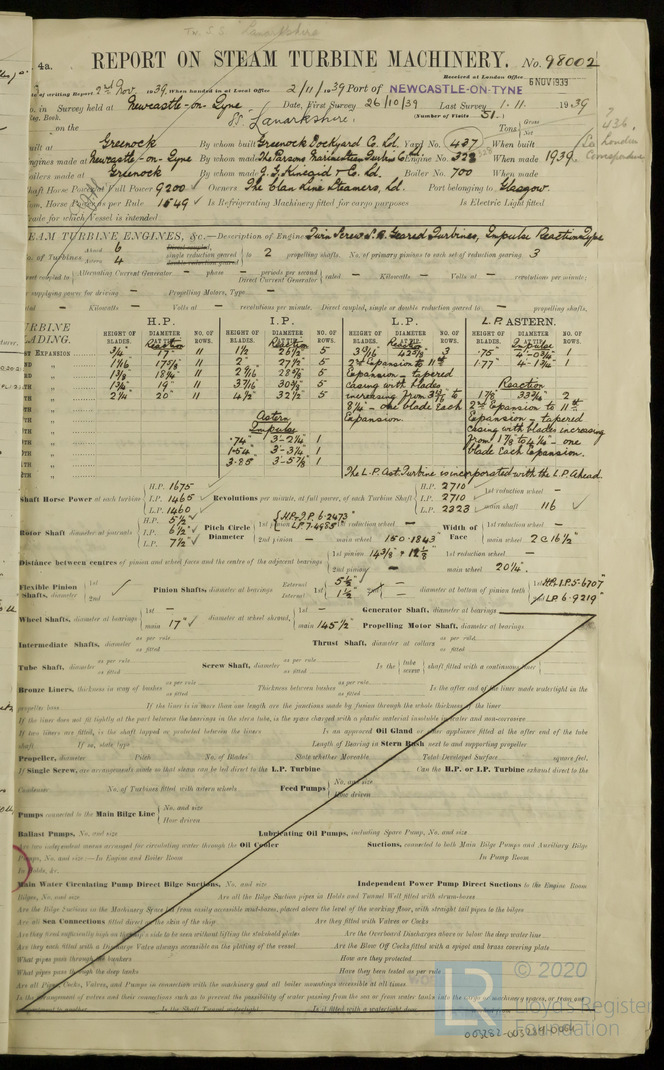 Tw. S.S. Lanarkshire
4a. REPORT ON STEAM TURBINE MACHINERY. No. 98002
Received at London Office 6 NOV 1939
of writing Report 2nd Nov 1939. When handed in at Local Office 2/11/1939 Port of NEWCASTLE-ON-TYNE
No. in Survey held at Newcastle-on-Tyne Date, First Survey 26/10/39 Last Survey 1.11. 1939
Reg. Book. (Number of Visits 51)
on the SS Lanarkshire. Tons { Gross Net
built at Greenock By whom built Greenock Dockyard Co. Ld. Yard No. 437 When built
Engines made at Newcastle-on-Tyne By whom made The Parsons Marine Steam Turbine Co. Ld. Engine No. 328 When made 1939.
Boilers made at Greenock By whom made J. G. Kincaid & Co. Ld. Boiler No. 700 When made
Shaft Horse Power at Full Power 9200 Owners The Clan Line Steamers, Ld. Port belonging to Glasgow.
Nom. Horse Power as per Rule 1549 Is Refrigerating Machinery fitted for cargo purposes Is Electric Light fitted
Trade for which Vessel is intended
STEAM TURBINE ENGINES, &c.—Description of Engines Twin Screw S.R. Geared Turbines, Impulse Reaction Type
No. of Turbines Ahead 6 Astern 4 single reduction geared to 2 propelling shafts. No. of primary pinions to each set of reduction gearing 3
Alternating Current Generator — phase — periods per second
Direct Current Generator rated — Kilowatts — Volts at — revolutions per minute;
supplying power for driving — Propelling Motors, Type —
— Kilowatts — Volts at — revolutions per minute. Direct coupled, single or double reduction geared to — propelling shafts.
TURBINE BLADING. H.P. I.P. L.P. L.P. ASTERN.
HEIGHT OF BLADES. DIAMETER AT TIP. NO. OF ROWS.
Reaction Reaction Reaction Impulse
1ST EXPANSION 3/4" 17" 11 1 1/2 26 1/2" 5 3 9/16 42 5/8" 3 .75" 4'-0 3/4" 1
1 1/16 17 5/8 11 2" 27 1/2" 5 2nd Expansion to 11th 1.77" 4'-1 3/4" 1
1 3/8 18 1/4" 11 2 9/16 28 5/8 5 Expansion - tapered Reaction
1 3/4" 19" 11 3 7/16 30 3/8" 5 casing with blades 1 7/8 33 3/4" 2
2 1/4 20" 11 4 1/2" 32 1/2" 5 increasing from 3 9/16 to 2nd Expansion to 11th
8 1/4" - one blade each Expansion. Expansion - tapered
Astern Impulse casing with blades increasing
.74" 3'-2 1/4" 1 from 1 7/8 to 4 1/4" - one
1.54 3'-3 1/4" 1 blade each Expansion.
3.85 3'-5 7/8" 1
The L.P. Ast. Turbine is incorporated with the L.P. Ahead.
Shaft Horse Power at each turbine { H.P. 1675 I.P. 1465 L.P. 1460 Revolutions per minute, at full power, of each Turbine Shaft { H.P. 2710 I.P. 2710 L.P. 2323 1st reduction wheel — main shaft 116
Rotor Shaft diameter at journals { H.P. 5 1/2" I.P. 6 1/2" L.P. 7 1/2" Pitch Circle Diameter { 1st pinion HP & IP 6.2473 LP 7.4985 1st reduction wheel — 2nd pinion — main wheel 150.1843 Width of Face { 1st reduction wheel — main wheel 2 @ 16 1/2"
Distance between centres of pinion and wheel faces and the centre of the adjacent bearings { 1st pinion 14 3/8" & 12 1/8 1st reduction wheel — 2nd pinion — main wheel 20 1/4"
Flexible Pinion Shafts, diameter { 1st 2nd Pinion Shafts, diameter at bearings External 5 1/2" Internal 1 1/2 2nd — diameter at bottom of pinion teeth { 1st HP. I.P. 5.6707 2nd LP. 6.9219"
Wheel Shafts, diameter at bearings { 1st — main 17" diameter at wheel shroud, { 1st — main 145 1/2" Generator Shaft, diameter at bearings
Propelling Motor Shaft, diameter at bearings
Intermediate Shafts, diameter as per rule as fitted Thrust Shaft, diameter at collars as per rule as fitted
Tube Shaft, diameter as per rule as fitted Screw Shaft, diameter as per rule as fitted Is the { tube screw } shaft fitted with a continuous liner
Bronze Liners, thickness in way of bushes as per rule as fitted Thickness between bushes as per rule as fitted Is the after end of the liner made watertight in the
propeller boss If the liner is in more than one length are the junctions made by fusion through the whole thickness of the liner
If the liner does not fit tightly at the part between the bearings in the stern tube, is the space charged with a plastic material insoluble in water and non-corrosive
If two liners are fitted, is the shaft lapped or protected between the liners Is an approved Oil Gland or other appliance fitted at the after end of the tube
shaft If so, state type Length of Bearing in Stern Bush next to and supporting propeller
Propeller, diameter Pitch No. of Blades State whether Moveable Total Developed Surface square feet.
If Single Screw, are arrangements made so that steam can be led direct to the L.P. Turbine Can the H.P. or I.P. Turbine exhaust direct to the
Condenser No. of Turbines fitted with astern wheels Feed Pumps { No. and size How driven
Pumps connected to the Main Bilge Line { No. and size How driven
Ballast Pumps, No. and size Lubricating Oil Pumps, including Spare Pump, No. and size
Are two independent means arranged for circulating water through the Oil Cooler Suctions, connected to both Main Bilge Pumps and Auxiliary Bilge
Pumps, No. and size:—In Engine and Boiler Room In Pump Room
In Holds, &c.
Main Water Circulating Pump Direct Bilge Suctions, No. and size Independent Power Pump Direct Suctions to the Engine Room
Bilges, No. and size Are all the Bilge Suction pipes in Holds and Tunnel Well fitted with strum-boxes
Are the Bilge Suctions in the Machinery Space led from easily accessible mud-boxes, placed above the level of the working floor, with straight tail pipes to the bilges
Are all Sea Connections fitted direct on the skin of the ship Are they fitted with Valves or Cocks
Are they fixed sufficiently high on the ship's side to be seen without lifting the stokehold plates Are the Overboard Discharges above or below the deep water line
Are they each fitted with a Discharge Valve always accessible on the plating of the vessel Are the Blow Off Cocks fitted with a spigot and brass covering plate
What pipes pass through the bunkers How are they protected
What pipes pass through the deep tanks Have they been tested as per rule
Are all Pipes, Cocks, Valves, and Pumps in connection with the machinery and all boiler mountings accessible at all times
Is the arrangement of valves and their connections such as to prevent the possibility of water passing from the sea or from water tanks into the cargo or machinery spaces, or from one
compartment to another Is the Shaft Tunnel watertight Is it fitted with a watertight door
LR © 2020
Lloyd's Register
Foundation